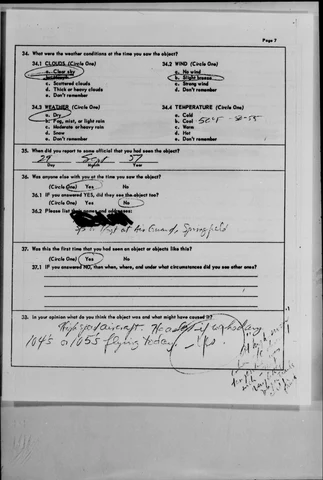 Page 7
34. What were the weather conditions at the time you saw the object?
34.1 CLOUDS (Circle One)
a. Clear sky
c. Scattered clouds
d. Thick or heavy clouds
e. Don't remember
34.2 WIND (Circle One)
a. No wind
b. Slight breeze
c. Strong wind
d. Don't remember
34.3 WEATHER (Circle One)
a. Dry
b. Fog, mist, or light rain
c. Moderate or heavy rain
d. Snow
e. Don't remember
34.4 TEMPERATURE (Circle One)
a. Cold
b. Cool
c. Warm
d. Hot
e. Don't remember
35. When did you report to some official that you had seen the object?
29 Sept 57
Day Month Year
36. Was anyone else with you at the time you saw the object?
(Circle One) Yes No
36.1 IF you answered YES, did they see the object too?
(Circle One) Yes No
36.2 Please list their names and addresses:
at Air Guard, Springfield
37. Was this the first time that you had seen an object or objects like this?
(Circle One) Yes No
37.1 IF you answered NO, then when, where, and under what circumstances did you see other ones?
38. In your opinion what do you think the object was and what might have caused it?
High speed aircraft.
104's or 105s flying today. - Yes.